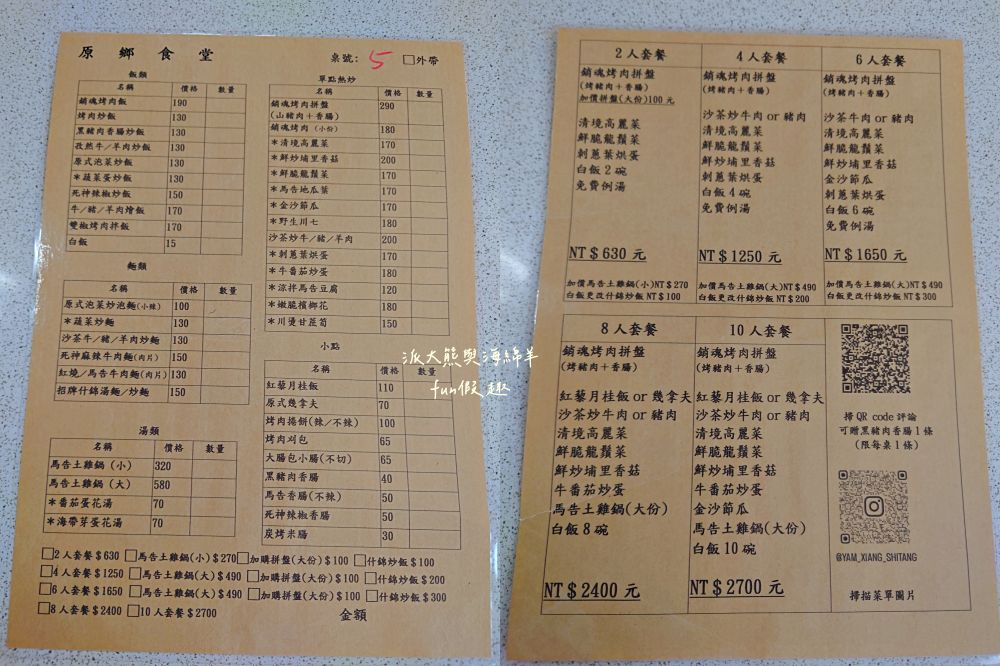 原鄉食堂 桌號: 5 □外帶
飯類
名稱 價格 數量
銷魂烤肉飯 190
烤肉炒飯 130
黑豬肉香腸炒飯 130
孜然牛/羊肉炒飯 130
原式泡菜炒飯 130
*蔬菜蛋炒飯 130
死神辣椒炒飯 150
牛/豬/羊肉燴飯 170
雙椒烤肉拌飯 170
白飯 15
麵類
名稱 價格 數量
原式泡菜炒泡麵(小辣) 100
*蔬菜炒麵 130
沙茶牛/豬/羊肉炒麵 130
死神麻辣牛肉麵(肉片) 150
紅燒/馬告牛肉麵(肉片) 130
招牌什錦湯麵/炒麵 150
湯類
名稱 價格 數量
馬告土雞鍋(小) 320
馬告土雞鍋(大) 580
*番茄蛋花湯 70
*海帶芽蛋花湯 70
單點熱炒
名稱 價格 數量
銷魂烤肉拼盤 290
(山豬肉+香腸)
銷魂烤肉(小份) 180
*清境高麗菜 170
*鮮炒埔里香菇 200
*鮮脆龍鬚菜 170
*馬告地瓜葉 170
*金沙節瓜 170
*野生川七 180
沙茶炒牛/豬/羊肉 200
*刺蔥葉烘蛋 170
*牛番茄炒蛋 180
*涼拌馬告豆腐 120
*嫩脆檳榔花 180
*川燙甘蔗筍 150
小點
名稱 價格 數量
紅藜月桂飯 110
原式幾拿夫 70
烤肉捲餅(辣/不辣) 100
烤肉刈包 65
大腸包小腸(不切) 65
黑豬肉香腸 40
馬告香腸(不辣) 50
死神辣椒香腸 50
炭烤米腸 30
□2人套餐$630 □馬告土雞鍋(小)$270 □加購拼盤(大份)$100 □什錦炒飯$100
□4人套餐$1250 □馬告土雞鍋(大)$490 □加購拼盤(大份)$100 □什錦炒飯$200
□6人套餐$1650 □馬告土雞鍋(大)$490 □加購拼盤(大份)$100 □什錦炒飯$300
□8人套餐$2400 □10人套餐$2700 金額
派大熊與海綿羊
fun假趣
2人套餐
銷魂烤肉拼盤
(烤豬肉+香腸)
加價拼盤(大份)100元
清境高麗菜
鮮脆龍鬚菜
刺蔥葉烘蛋
白飯2碗
免費例湯
NT$630元
加價馬告土雞鍋(小)NT$270
白飯更改什錦炒飯NT$100
4人套餐
銷魂烤肉拼盤
(烤豬肉+香腸)
沙茶炒牛肉or豬肉
清境高麗菜
鮮脆龍鬚菜
鮮炒埔里香菇
刺蔥葉烘蛋
白飯4碗
免費例湯
NT$1250元
加價馬告土雞鍋(大)NT$490
白飯更改什錦炒飯NT$200
6人套餐
銷魂烤肉拼盤
(烤豬肉+香腸)
沙茶牛肉or豬肉
清境高麗菜
鮮脆龍鬚菜
鮮炒埔里香菇
金沙節瓜
刺蔥葉烘蛋
白飯6碗
免費例湯
NT$1650元
加價馬告土雞鍋(大)NT$490
白飯更改什錦炒飯NT$300
8人套餐
銷魂烤肉拼盤
(烤豬肉+香腸)
紅藜月桂飯or幾拿夫
沙茶炒牛肉or豬肉
清境高麗菜
鮮脆龍鬚菜
鮮炒埔里香菇
牛番茄炒蛋
馬告土雞鍋(大份)
白飯8碗
NT$2400元
10人套餐
銷魂烤肉拼盤
(烤豬肉+香腸)
紅藜月桂飯or幾拿夫
沙茶炒牛肉or豬肉
清境高麗菜
鮮脆龍鬚菜
鮮炒埔里香菇
牛番茄炒蛋
金沙節瓜
馬告土雞鍋(大份)
白飯10碗
NT$2700元
掃QR code評論
可贈黑豬肉香腸1條
(限每桌1條)
@YAM_XIANG_SHITANG
掃描菜單圖片